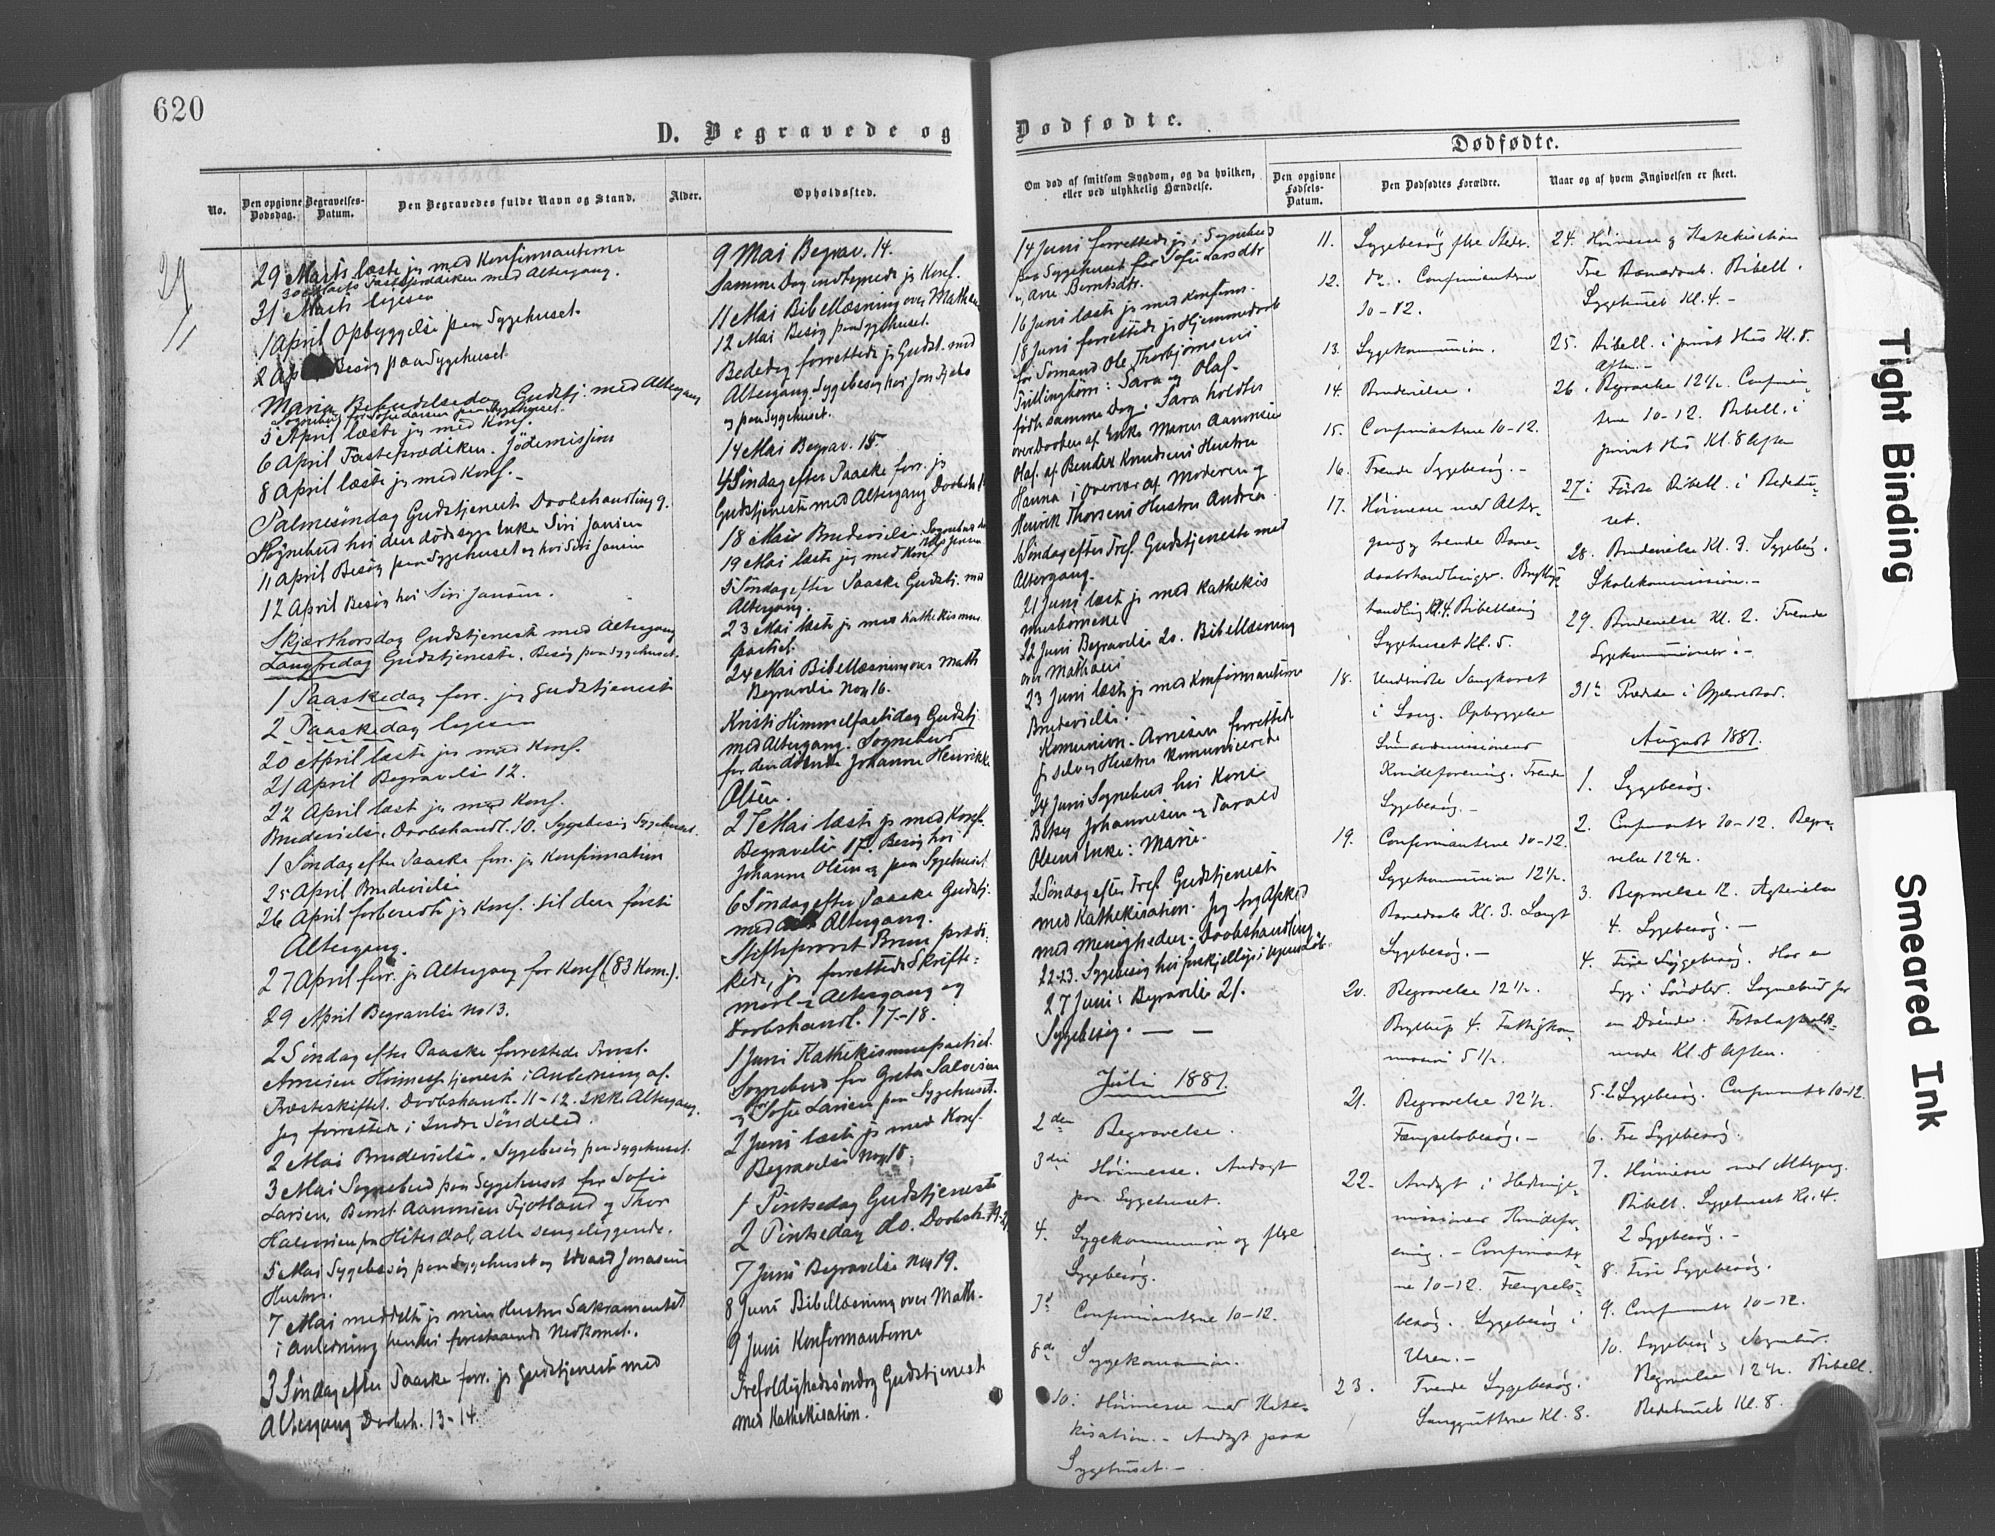 620
D. Begravede og
No.
Den opgivne Dødsdag.
Begravelses-Datum.
Den Begravedes fulde Navn og Stand.
Alder.
Opholdssted.
29 Marts læste jeg med Konfirmanterne
30 Marts Fasteprædiken med Altergang.
31 Marts ligesen
1 April Opbyggelse paa Sygehuset.
2 April Besøg paa Sygehuset
Maria Bebudelsesdag Gudstj. med Altergang
Sognebud for Sofie Larsen paa Sygehuset.
5 April læste jeg med Konf.
6 April Fasteprædiken. Jødemission
8 April læste jeg med Konf.
Palmesøndag Gudstjeneste Daabshandling 9.
Sognebud hos den dødssyge Enke Siri Jansen
11 April Besøg paa Sygehuset og hos Siri Jansen
12 April Besøg hos Siri Jansen.
Skjærthorsdag Gudstjeneste med Altergang
Langfredag Gudstjeneste. Besøg paa Sygehuset.
1 Paaskedag forr. jeg Gudstjeneste
2 Paaskedag ligesen
20 April læste jeg med Konf.
21 April Begravelse 12.
22 April læst jeg med Konf.
Brudevielse. Daabshandl. 10. Sygebesøg Sygehuset.
1 Søndag efter Paaske forr. jeg Konfirmation
25 April Brudevielse
26 April forberedte jeg Konf. til den første
Altergang.
27 April forr. jeg Altergang for Konf. (83 Kom.).
29 April Begravelse No 13.
2 Søndag efter Paaske forrettede Provst
Arnesen Høimessetjeneste i Anledning af
Præsteskiftet. Daabshandl. 11-12. Ikke Altergang.
Jeg forrettede i Indre Søndeled.
2 Mai Brudevielse. Sygebesøg paa Sygehuset.
3 Mai Sognebud paa Sygehuset for Sofie
Larsen, Bernt Aanonsen Fjotland og Thor
Halvorsen fra Hitterdal, alle sengeliggende.
5 Mai Sygebesøg paa Sygehuset og Edvard Jonasens
Hustru.
7 Mai meddelte jeg min Hustru Sakramentet
i Anledning hendes forestaaende Nedkomst.
3 Søndag efter Paaske forr. jeg Gudstjeneste med
Altergang Daabsh. 13-14.
9 Mai Begrav. 14.
Samme Dag indtegnede jeg Konf.
11 Mai Bibellæsning over Mathæu
12 Mai Besøg paa Sygehuset.
Bededag forrettede jeg Gudst. med
Altergang. Sygebesøg hos Jon
og paa Sygehuset.
14 Mai Begrav. 15.
4 Søndag efter Paaske forr. jeg
Gudstjeneste med Altergang Daabsh.
18 Mai Brudevielse. Sognebud
19 Mai læste jeg med Konf.
5 Søndag efter Paaske Gudstj. med
Altergang.
23 Mai læste jeg med Kathekismus
partiet.
24 Mai Bibellæsning over Math
Begravelse No 16.
Kristi Himmelfartsdag Gudstj
med Altergang. Sognebud
for den døende Johanne Henrikke
Olsen.
27 Mai læste jeg med Konf.
Begravelse 17. Besøg hos
Johanne Olsen og paa Sygehuset
6 Søndag efter Paaske Gudstj.
med Altergang.
Stiftsprovst Brun præd:
kede, jeg forrettede Skrifte-
maal & Altergang og
Daabshandl. 17-18.
1 Juni Kathekismuspartiet.
Sognebud for Grete Salvesen
og for Sofie Larsen paa Sygehuset.
2 Juni læste jeg med Konf.
Begravelse No 18.
1 Pintsedag Gudstjeneste
2 Pintsedag do. Daabsh. 19.
7 Juni Begravelse No 19.
8 Juni Bibellæsning over Math.
9 Juni Konfirmanterne
Trefoldighedssøndag Gudstjeneste
med Kathekisation.
Dødfødte.
Om død af smitsom Sygdom, og da hvilken, eller ved ulykkelig Hændelse.
Dødfødte.
Den opgivne Fødsels-Datum.
Den Dødfødtes Forældre.
Naar og af hvem Angivelsen er skeet.
14 Juni forrettede jeg Sognebud
paa Sygehuset for Sofie Larsdtr
og Ane Berntsdtr.
16 Juni læste jeg med Konfirm.
18 Juni forrettede jeg Hjemmedaab
for Sømand Ole Thorbjørnsens
Tvillingbørn: Sara og Olaf.
fødte samme Dag. Sara holdtes
over Daaben af Enke Maren Aanonsen
Olaf. af Bendix Knudsens Hustru
Hanna i Overvær af Moderen og
Henrik Thorsens Hustru Andrea.
1 Søndag efter Tref. Gudstjeneste med
Altergang.
21 Juni læst jeg med Kathekis
musbørnene
22 Juni Begravelse 20. Bibellæsning
over Mathæus
23 Juni læst jeg med Konfirmanterne
Brudevielse.
Kommunion. Arnesen forrettede
jeg selv og Hustru kommunicerede
24 Juni Sognebud hos Kone
Betsy Johannesen og Tarald
Olsens Enke: Marie.
2 Søndag efter Tref. Gudstjeneste
med Kathekisation. Jeg tog Afsked
med Menigheden. Daabshandling
22-23. Sygebesøg hos forskjellige i Ugens Løb.
27 Juni: Begravelse 21.
Sygebesøg. — —
Juli 1887.
2den Begravelse.
3die Høimesse. Andagt
paa Sygehuset.
4. Sygekommunion og flere
Sygebesøg.
7d Confirmanterne 10-12.
8de Sygekommunion.
10. Høimesse med Kate-
kisation. - Andagt paa
Sygehuset. -
11. Sygebesøg flere Steder.
12. do. Confirmanterne
10-12.
13. Sygekommunion.
14. Brudevielse.
15. Confirmanterne 10-12.
16. Trende Sygebesøg. -
17. Høimesse med Alter-
gang og trende Barne-
daabshandlinger. Bryllups
handling Kl 4. Bibellæsning
Sygehuset Kl. 5.
18. Undviste Sangkoret
i Sang. Opbyggelse
Sømandsmissionens
Kvindeforening. Trende
Sygebesøg. -
19. Confirmanterne 10-12.
Sygekommunion 12½.
Barnedaab Kl. 3. Langt
Sygebesøg. -
20. Begravelse 12½.
Bryllup 4. Fattigkom-
mission 5½.
21. Begravelse 12½.
Fængselsbesøg. -
22. Andagt i Hedninge-
missionens Kvindefor-
ening. - Confirmanter-
ne 10-12. Fængsels-
besøg. Sygebesøg i
Uren. -
23. Trende Sygebesøg.
Sanggutterne Kl. 8.
24. Høimesse og Katekisation
Tre Barnedaab. Bibell.
Sygehuset Kl. 4. -
25. Bibell. i privat Hus Kl. 8.
Aften. -
26. Begravelse 12½. Confirman-
terne 10-12. Bibell. i
privat Hus Kl. 8 Aften
27: Første Bibell. i Bedehu-
set.
28. Brudevielse Kl. 3. Sygebesøg.
Skolekommission. -
29. Brudevielse Kl. 2. Trende
Sygekommunioner. -
31te Prædken i
August 1887.
1. Sygebesøg.
2. Confirmanter 10-12. Begra-
velse 12½.
3. Begravelse 12. Ægtevielse
4. Sygebesøg. —
4. Fire Sygebesøg. Hos en
Syg i Søndled. Sognebud for
en Døende.
møde Kl. 8 Aften.
5. 2 Sygebesøg. Confirmanter 10-12.
6. Tre Sygebesøg.
7. Høimesse med Altergang.
Bibell. Sygehuset Kl. 4.
2 Sygebesøg. -
8. Fire Sygebesøg.
9. Confirmanter 10-12.
10. Sygebesøg, Sognebud.
Begravelse 12½. Bibell.
Bedehuset Kl. 8.
Tight Binding
Smeared Ink